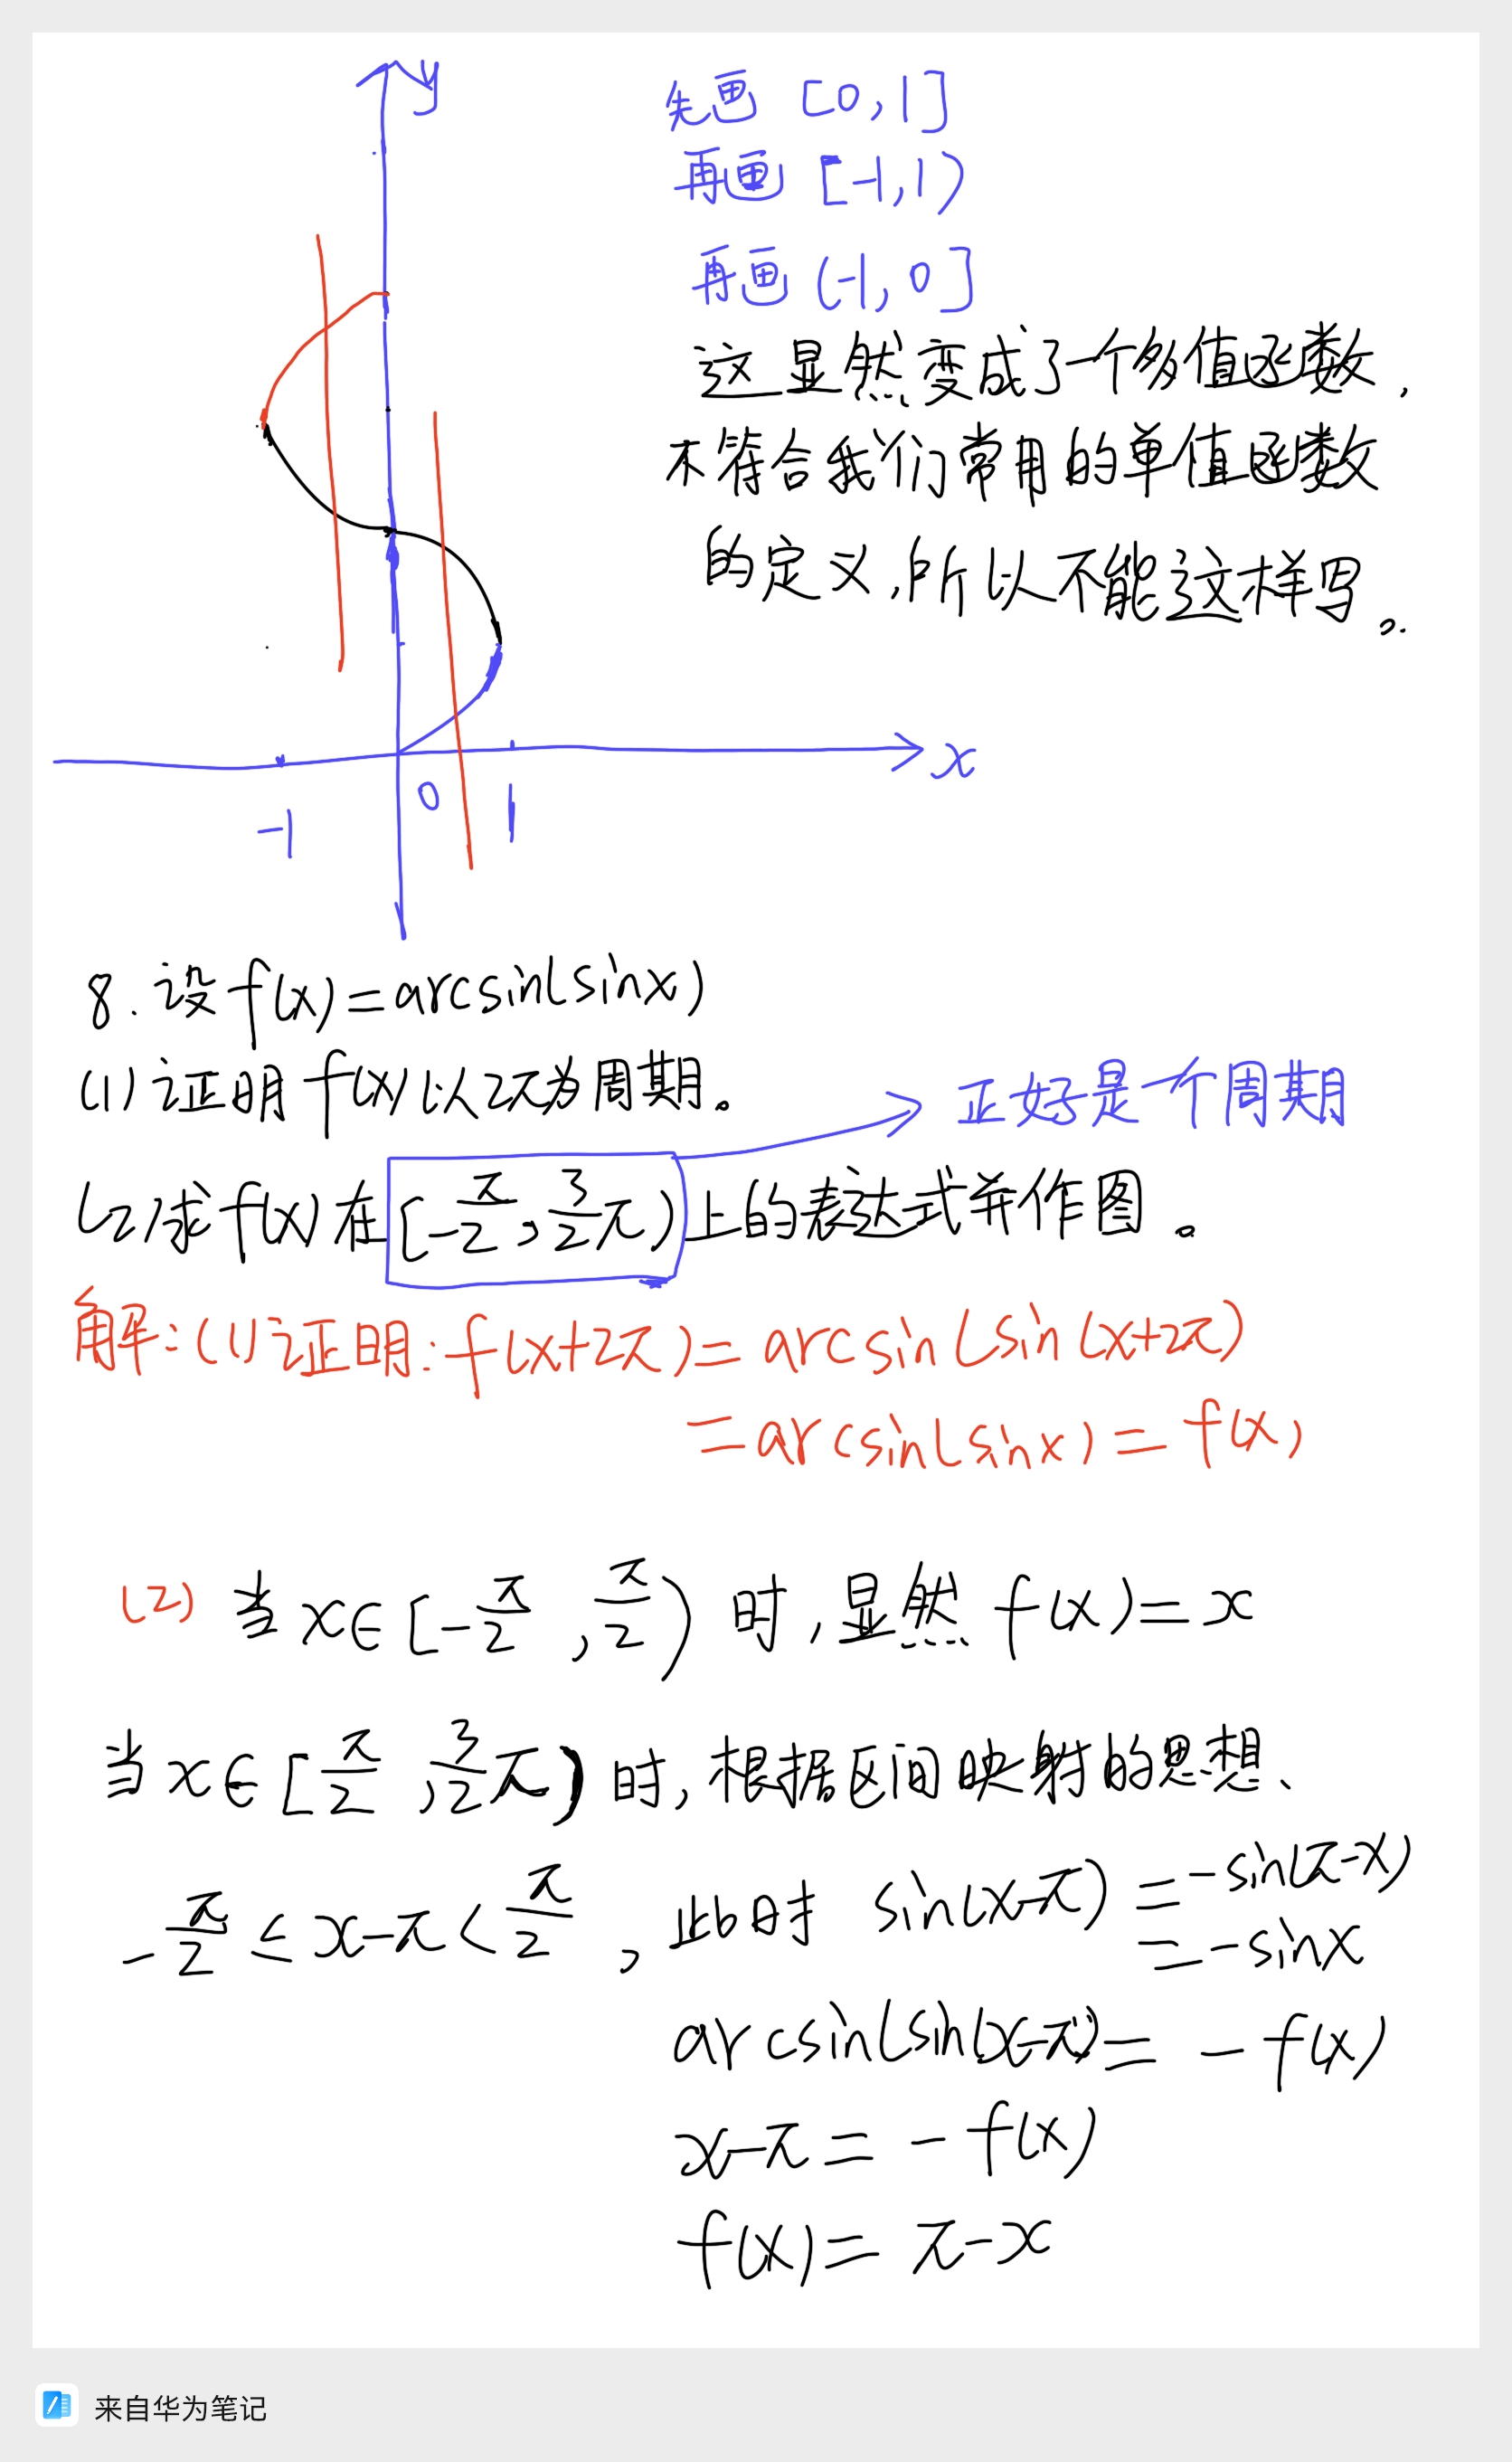 y
先画 [0,1]
再画 [-1,1)
再画 (-1,0]
这显然变成了一个多值函数,
不符合我们常用的单值函数
的定义,所以不能这样写。
x
-1 0 1
8.设f(x)=arcsin(sinx)
(1)证明f(x)以2π为周期。
正好是一个周期
(2)求f(x)在[-π/2,3/2π)上的表达式并作图。
解:(1)证明:f(x+2π)=arcsin(sin(x+2π)
=arcsin(sinx)=f(x)
(2)当x∈[-π/2,π/2)时,显然f(x)=x
当x∈[π/2,3/2π)时,根据区间映射的思想、
-π/2≤x-π<π/2,此时sin(x-π)=-sin(π-x)
=-sinx
arcsin(sin(x-π)=-f(x)
x-π=-f(x)
f(x)=π-x
来自华为笔记